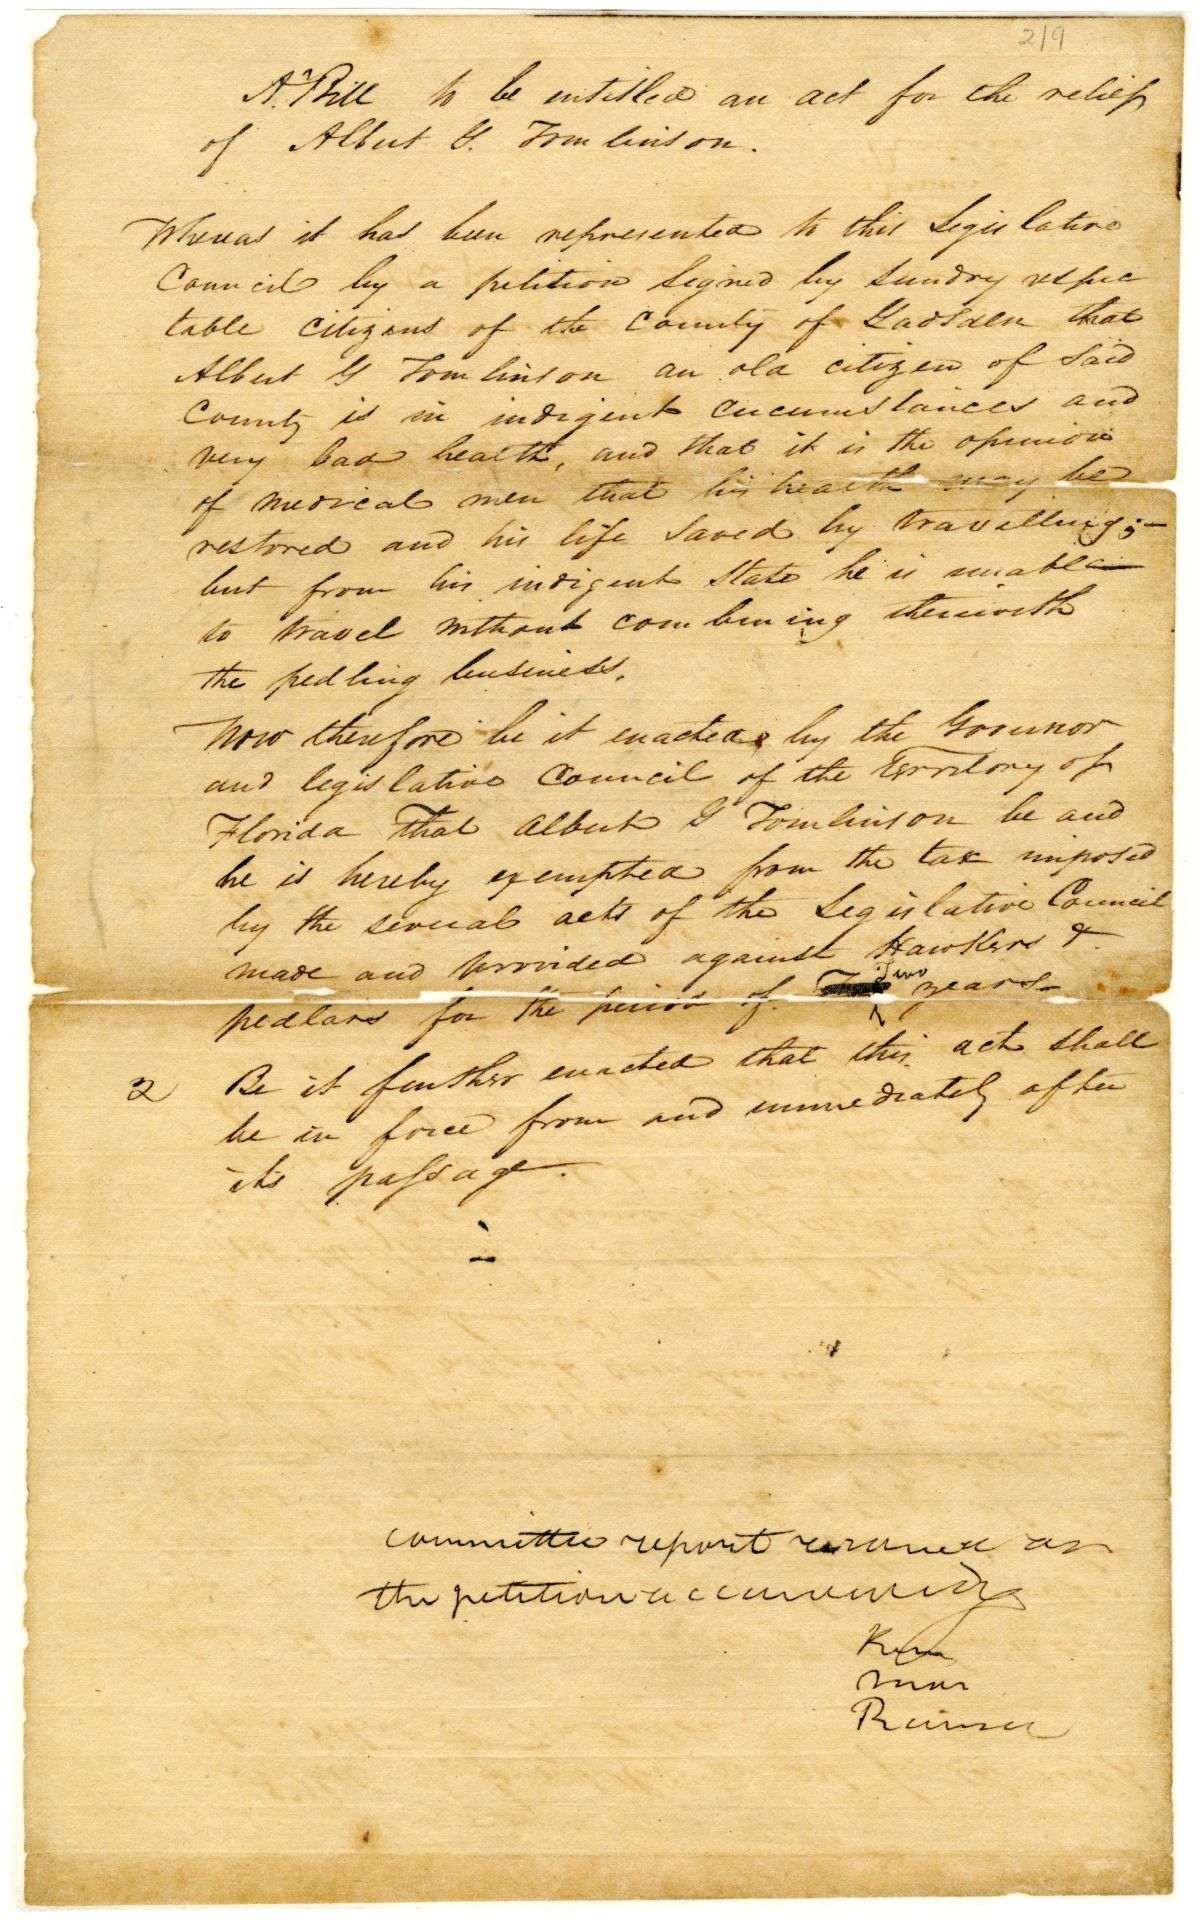 219
A Bill to be entitled an act for the relief
of Albert G. Tomlinson.
Whereas it has been represented to this Legislative
Council by a petition signed by sundry respec
table citizens of the County of Gadsden that
Albert G Tomlinson an old citizen of said
County is in indigent circumstances and
very bad health, and that it is the opinion
of medical men that his health may be
restored and his life saved by travelling;
but from his indigent state he is unable
to travel without combining therewith
the pedling business.
Now therefore be it enacted by the Governor
and legislative Council of the Territory of
Florida That Albert G Tomlinson be and
he is hereby exempted from the tax imposed
by the several acts of the Legislative Council
made and provided against Hawkers &
pedlars for the period of Two years
2 Be it further enacted that this act shall
be in force from and immediately after
its passage.
committee report
the petition